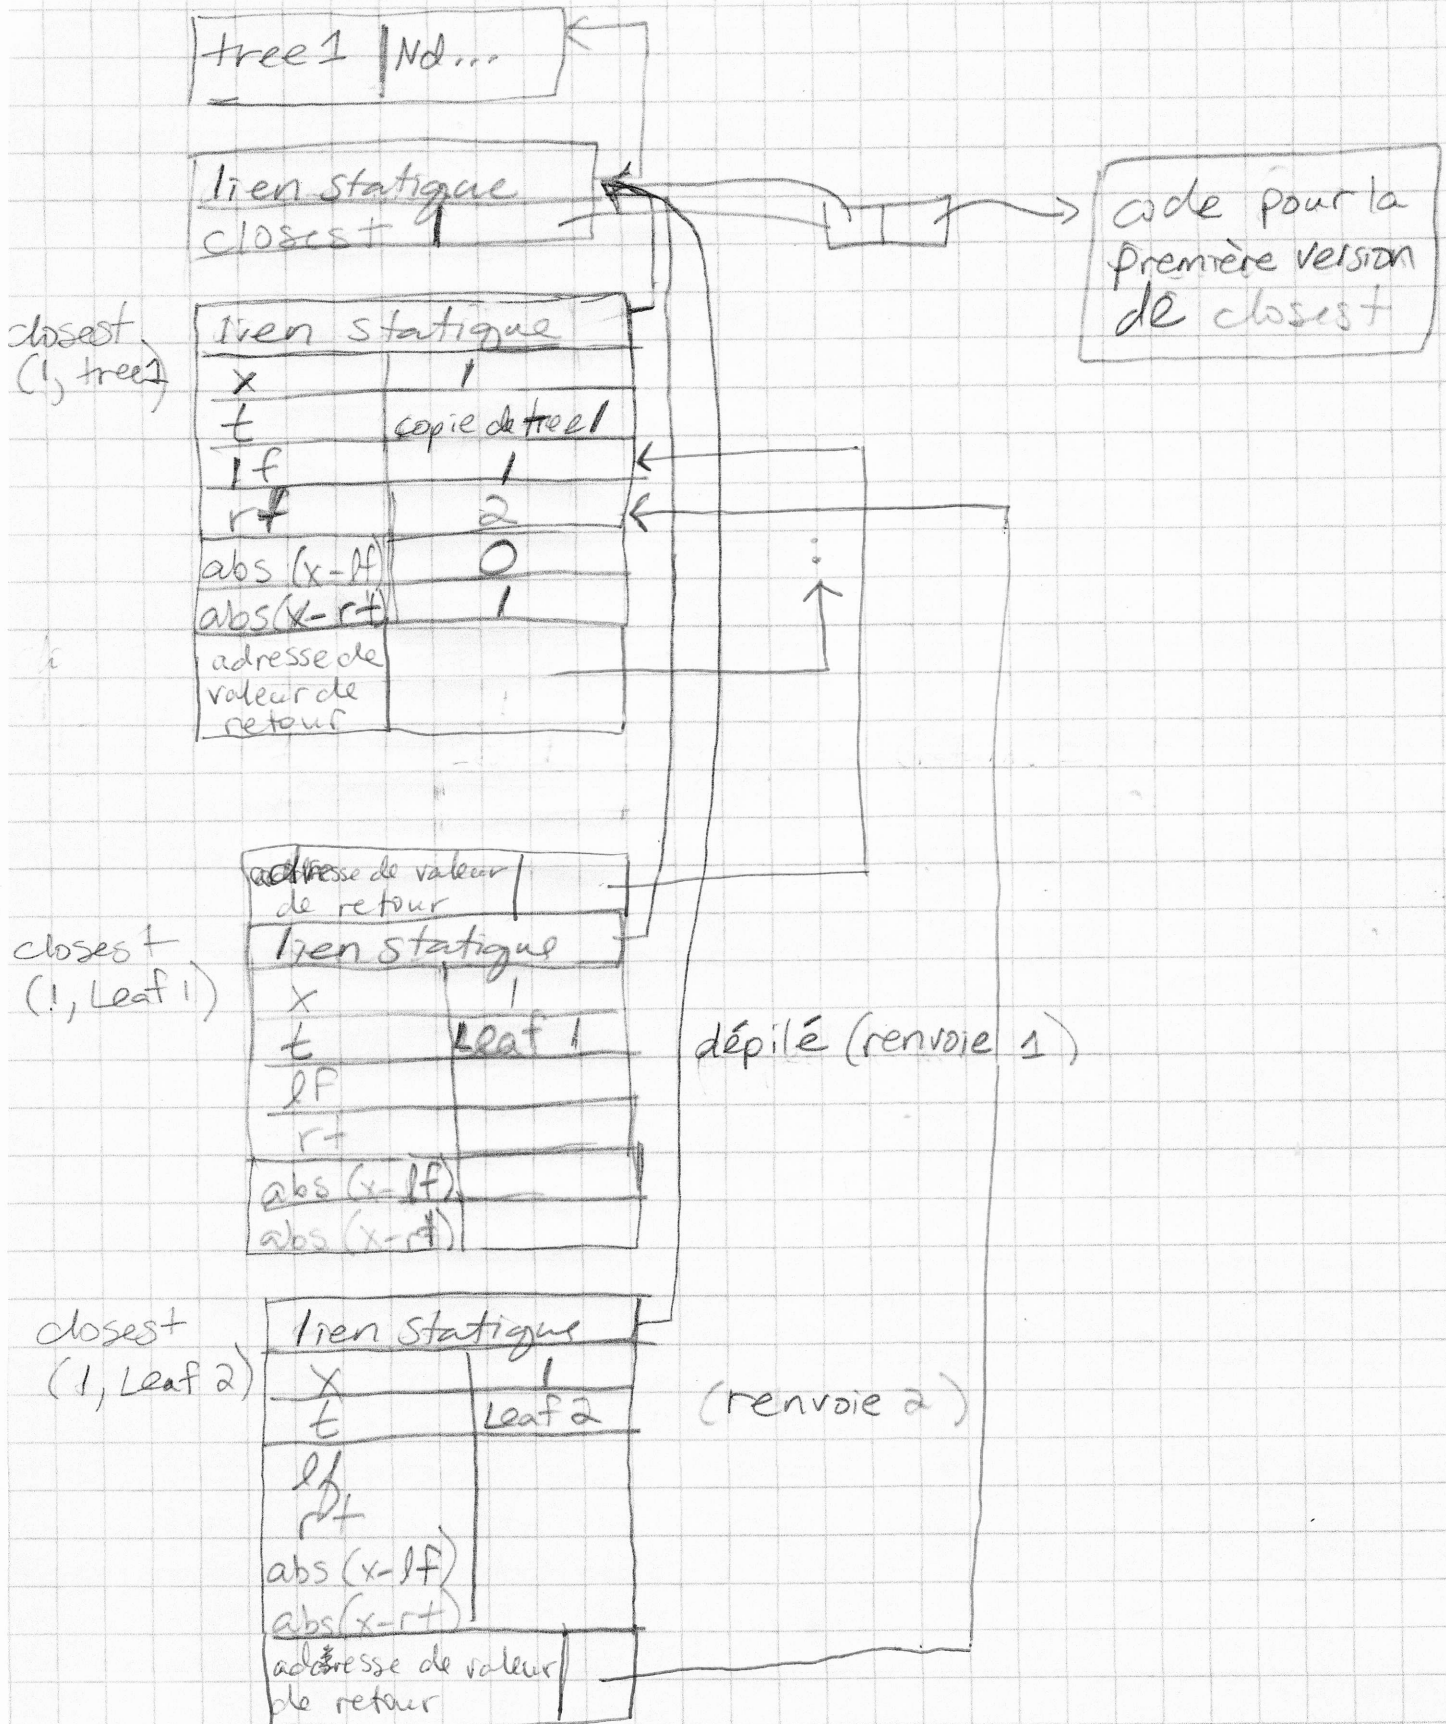 tree 1 | Nd...
lien statique
closest
code pour la
première version
de closest
closest
(1, tree1)
lien statique
x 1
t copie de tree 1
lf 1
rt 2
abs (x-lf) 0
abs (x-rt) 1
adresse de
valeur de
retour
adresse de valeur
de retour
closest
(1, Leaf 1)
lien statique
x 1
t Leaf 1
lf
rt
abs (x-lf)
abs (x-rt)
dépilé (renvoie 1)
closest
(1, Leaf 2)
lien statique
x 1
t Leaf 2
lf
rt
abs (x-lf)
abs (x-rt)
(renvoie 2)
adresse de valeur
de retour